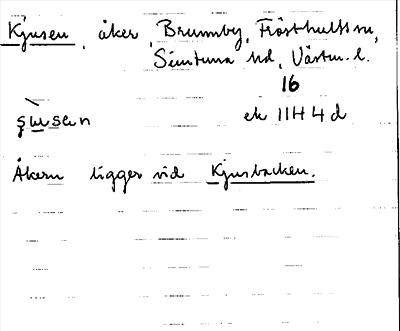 Kjusen, åker, Brunnby, Frösthults sn,
Simtuna hd, Västm. l.
16
ʂɯsɛn ek 11H 4 d
Åkern ligger vid Kjusbacken.